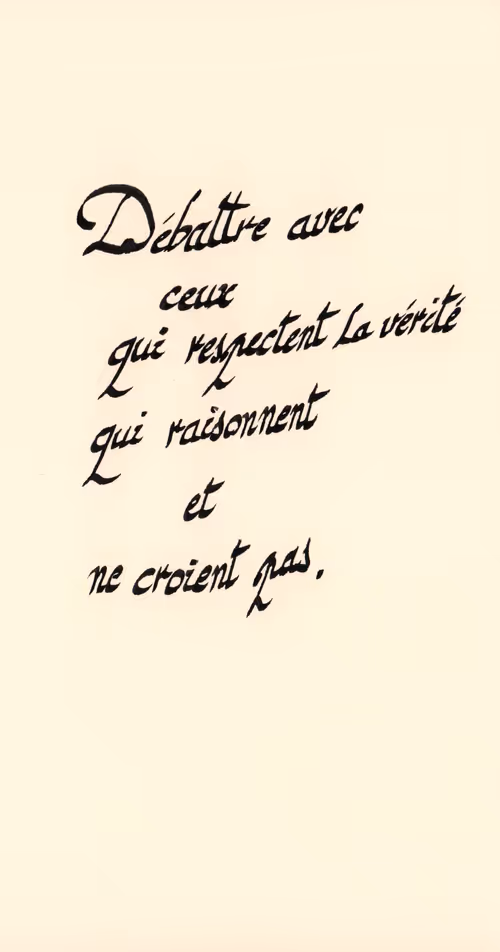 Débattre avec
ceux
qui respectent la vérité
qui raisonnent
et
ne croient pas.